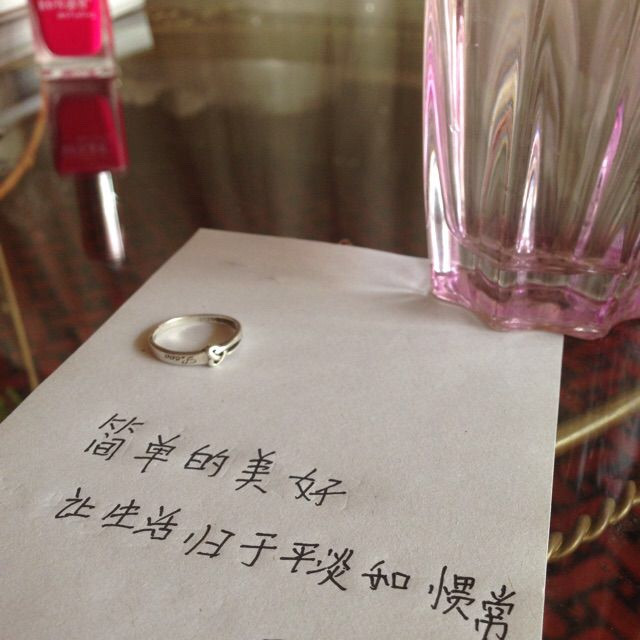 Love
简单的美好
让生活归于平淡和惯常